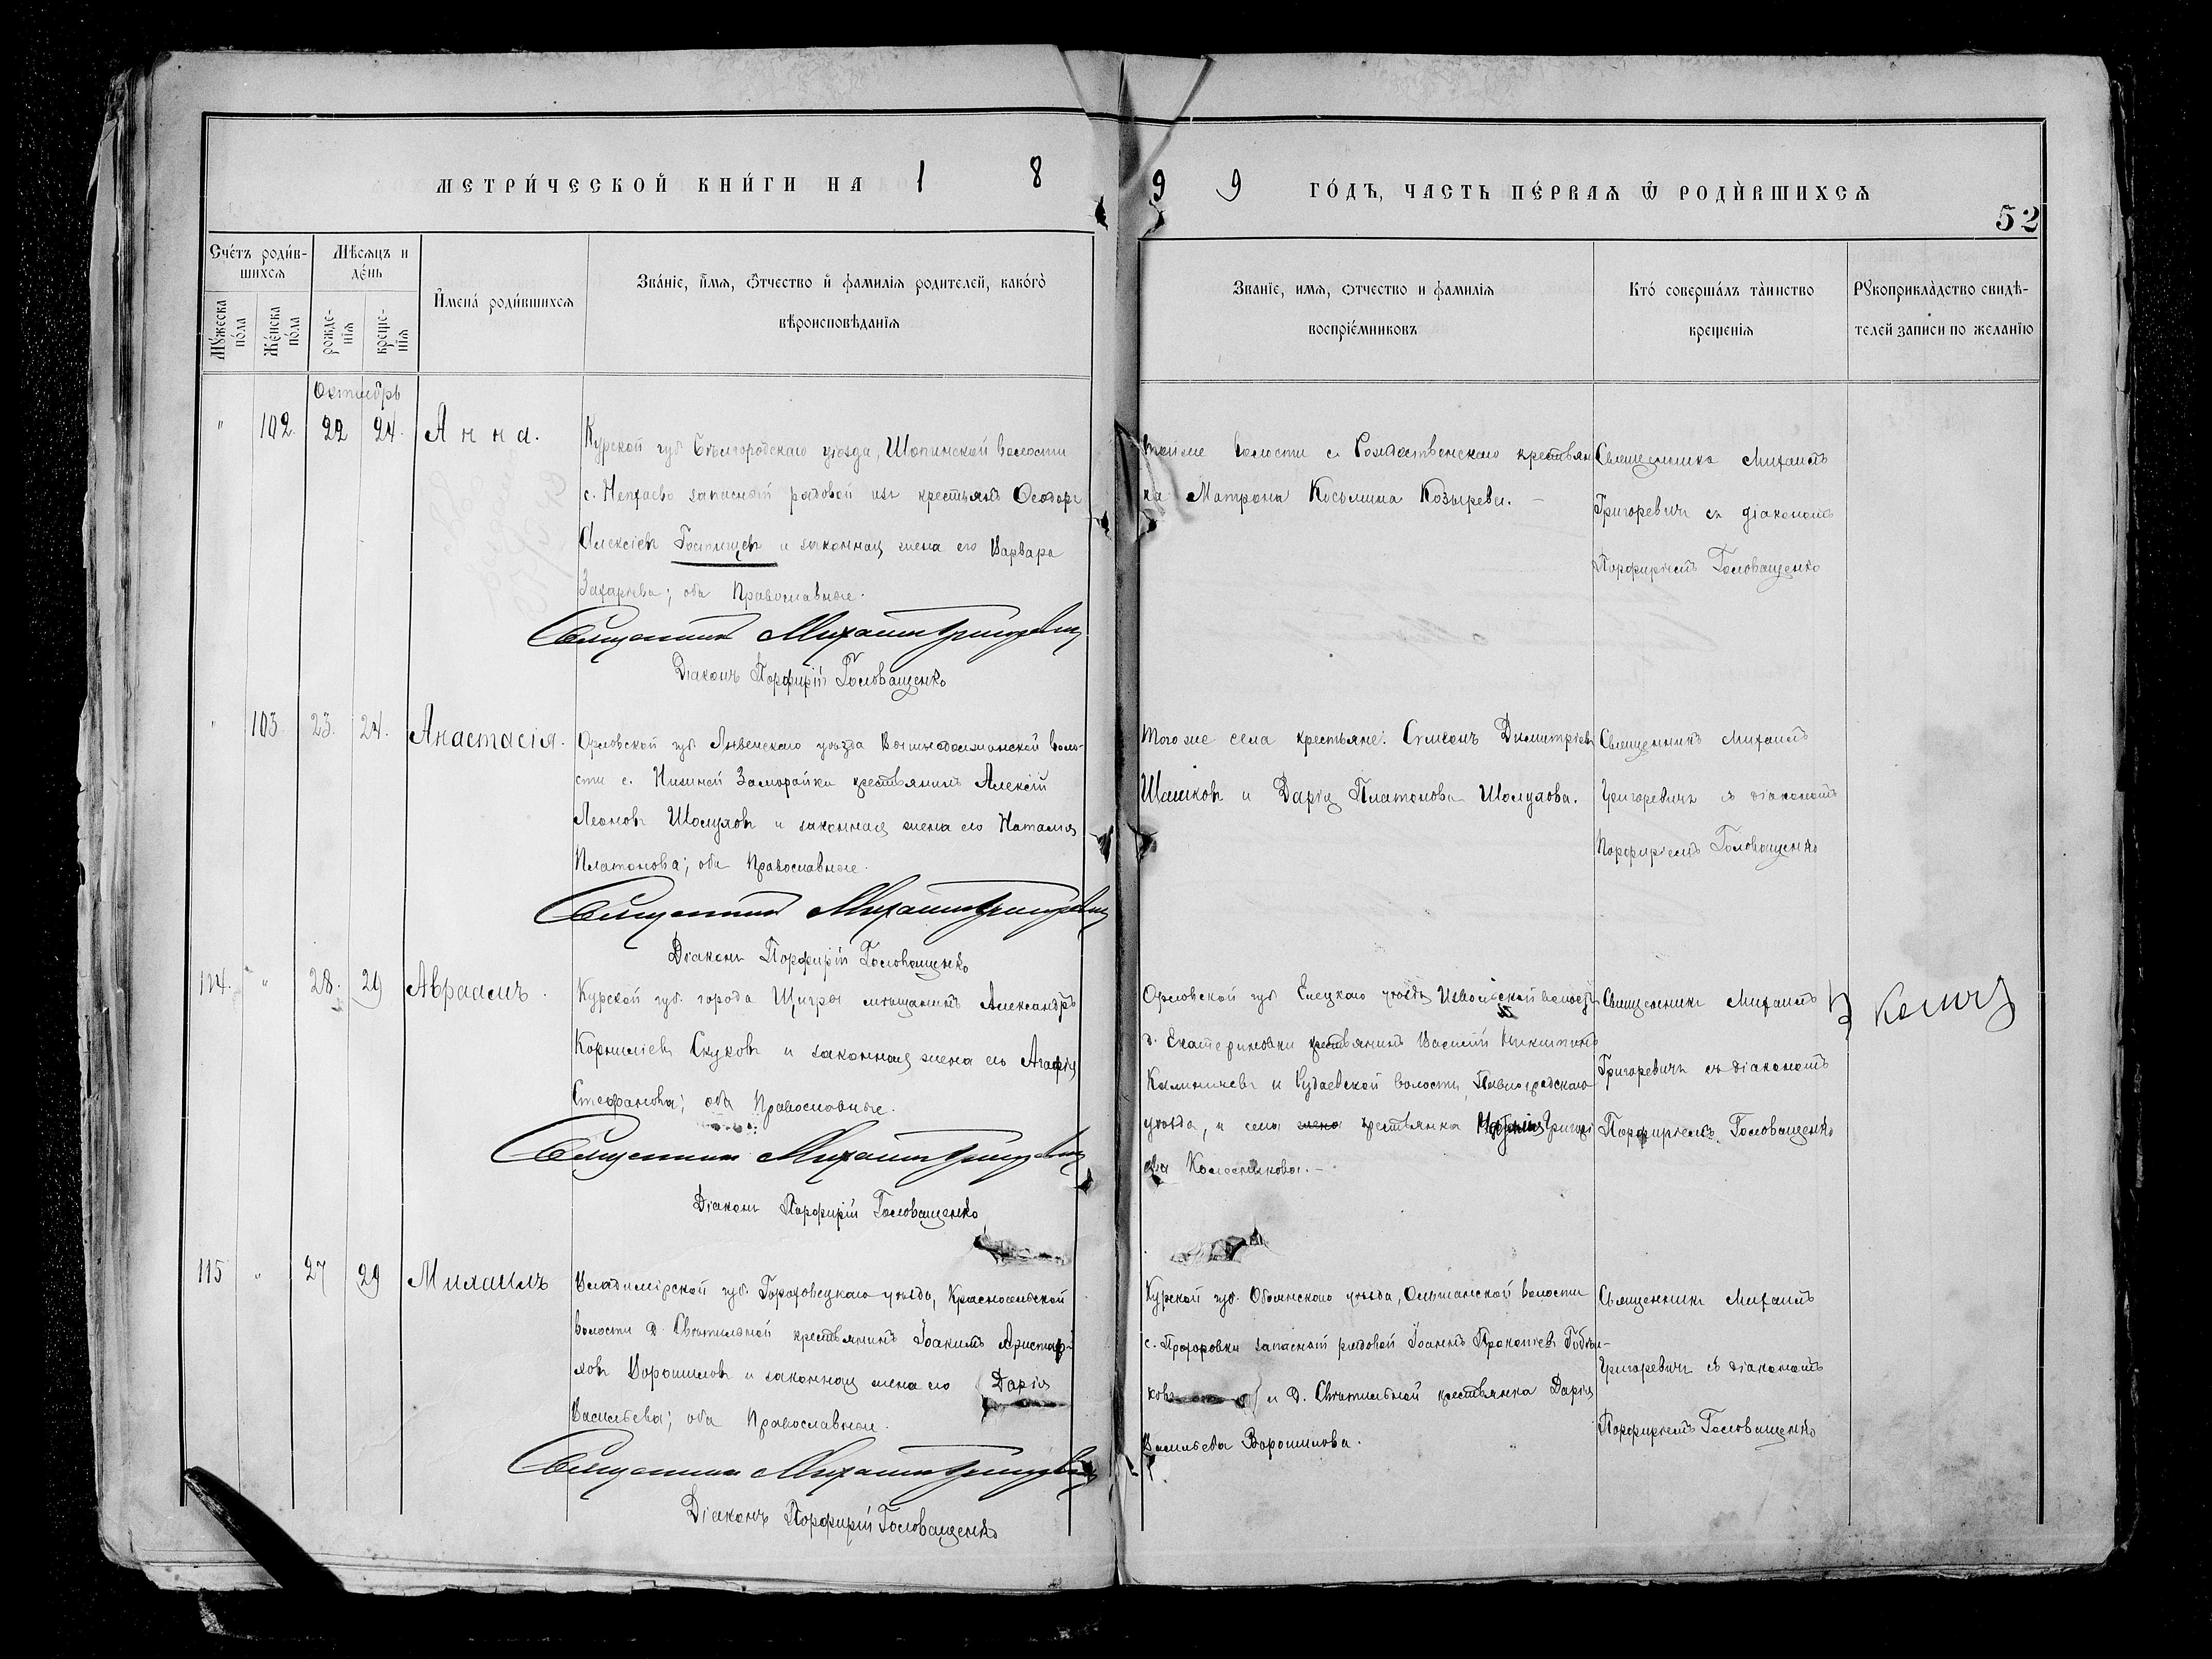 МЕТРИ́ЧЕСКОЙ КНИ́ГИ НА 1 8 9 9 ГО́ДЪ, ЧАСТЬ ПЕ́РВАЯ Ѡ РОДИ́ВШИХСЯ
52
Сче́тъ роди́в-
шихся
Мѣсяцъ и
де́нь
Мꙋ́жеска
по́ла
Же́нска
по́ла
рожде-
нія
креще-
нія
И҆мена́ роди́вшихся
Зва́ніе, и҆́мя, ѻ҆́тчество и҆ фамилія родителей, како́гѡ
вѣроисповѣданїя
Званїе, имя, ѻтчество и фамилїя
воспріе́мниковъ
Кто́ соверша́лъ та̀инство
крещенїя
Рꙋкоприкла̀дство свидѣ-
телей записи по желанїю
Октябрь
" 102. 22 24. Анна.
Курской губ. Бѣлгородскаго уѣзда, Шопинской волости
с. Непхаево запасный рядовой изъ крестьянъ Ѳеодоръ
Алексіевъ Гостищевъ и законная жена его Варвара
Захаріева; оба Православные.
Священникъ Михаилъ Григоревичъ
Діаконъ Порфирій Головащенко
тойже волости с. Рождественскаго крестьян
ка Матрона Косьмина Козырева. –
Священникъ Михаилъ
Григоревичъ съ діакономъ
Порфиріемъ Головащенко
" 103 23. 24. Анастасія.
Орловской губ. Ливенскаго уѣзда волo-
сти с. Нижней Заморайки крестьянинъ Алексій
Леоновъ Шолуховъ и законная жена его Наталія
Платонова; оба Православные.
Священникъ Михаилъ Григоревичъ
Діаконъ Порфирій Головащенко
того же села крестьяне: Симеонъ Димитріевъ
и Дарія Платонова Шолухова.
Священникъ Михаилъ
Григоревичъ съ діакономъ
Порфиріемъ Головащенко
114. " 28. 29 Авраамъ.
Курской губ. города Щигры мѣщанинъ Александръ
Корниліевъ Скуковъ и законная жена его Агафія
Стефанова; оба Православные.
Священникъ Михаилъ Григоревичъ
Діаконъ Порфирій Головащенко
Орловской губ. Елецкаго уѣзда Извольской волости
д. Екатериновки крестьянинъ Василій Никитинъ
Калиничевъ и волости, Павлоградскаго
уѣзда, и села жена крестьянка Григорі
ева Колесникова. –
Священникъ Михаилъ
Григоревичъ съ діакономъ
Порфиріемъ Головащенко
115 " 27 29 Михаилъ
Владимірской губ. Гороховецкаго уѣзда, Красносельской
волости д. Свѣтильной крестьянинъ Іоакимъ Аристар-
ховъ Ворошиловъ и законная жена его Дарія
Васильева; оба Православные.
Священникъ Михаилъ Григоревичъ
Діаконъ Порфирій Головащенко
Курской губ. Обоянскаго уѣзда, Ольшанской волости
с. Прохоровки запасный рядовой Іоаннъ Прокопіевъ
и д. Свѣтильной крестьянка Дарія
Васильева Ворошилова.
Священникъ Михаилъ
Григоревичъ съ діакономъ
Порфиріемъ Головащенко